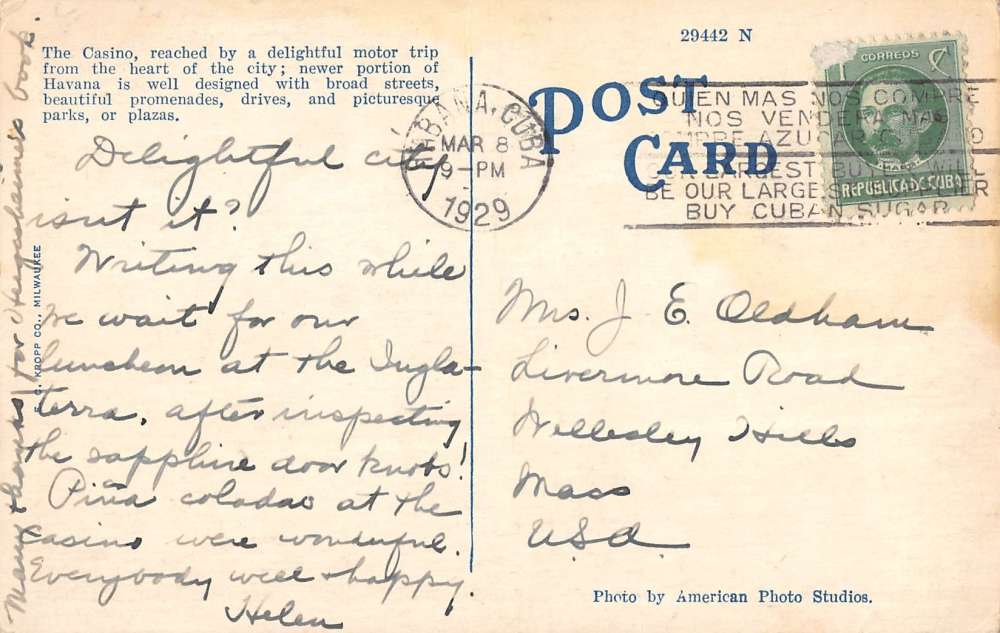 The Casino, reached by a delightful motor trip
from the heart of the city; newer portion of
Havana is well designed with broad streets,
beautiful promenades, drives, and picturesque
parks, or plazas.
Delightful city
isnt it?
Writing this while
we wait for our
luncheon at the Ingla-
terra, after inspecting
the sapphire door knobs!
Piña coladas at the
casino were wonderful.
Everybody well + happy.
Helen
Many thanks for Hergesheimer's book.
E. C. KROPP CO., MILWAUKEE
29442 N
POST
CARD
HABANA, CUBA
MAR 8
9-PM
1929
QUIEN MAS NOS COMPRE
NOS VENDERA MAS
COMPRE AZUCAR
OUR LARGEST BUYER WILL
BE OUR LARGEST
BUY CUBAN SUGAR
CORREOS
1 ¢
REPUBLICA DE CUBA
Mrs. J. E. Oldham
Livermore Road
Wellesley Hills
Mass
USA
Photo by American Photo Studios.